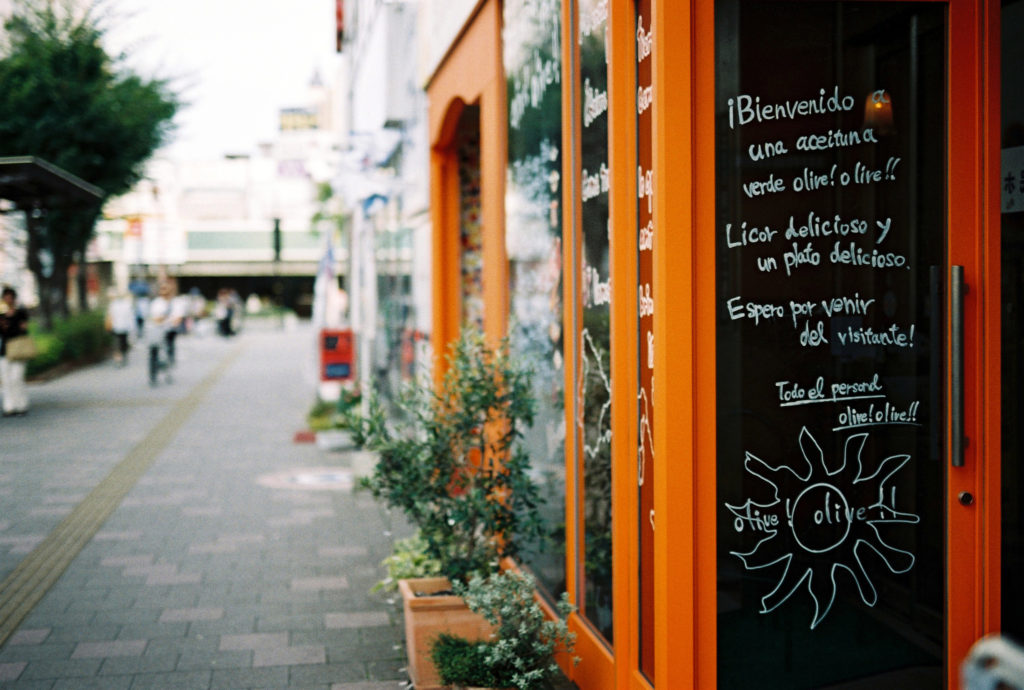 ¡Bienvenido a
una aceituna
verde olive! olive!!
Licor delicioso y
un plato delicioso.
Espero por venir
del visitante!
Todo el personal
olive! olive!!
olive! olive!!